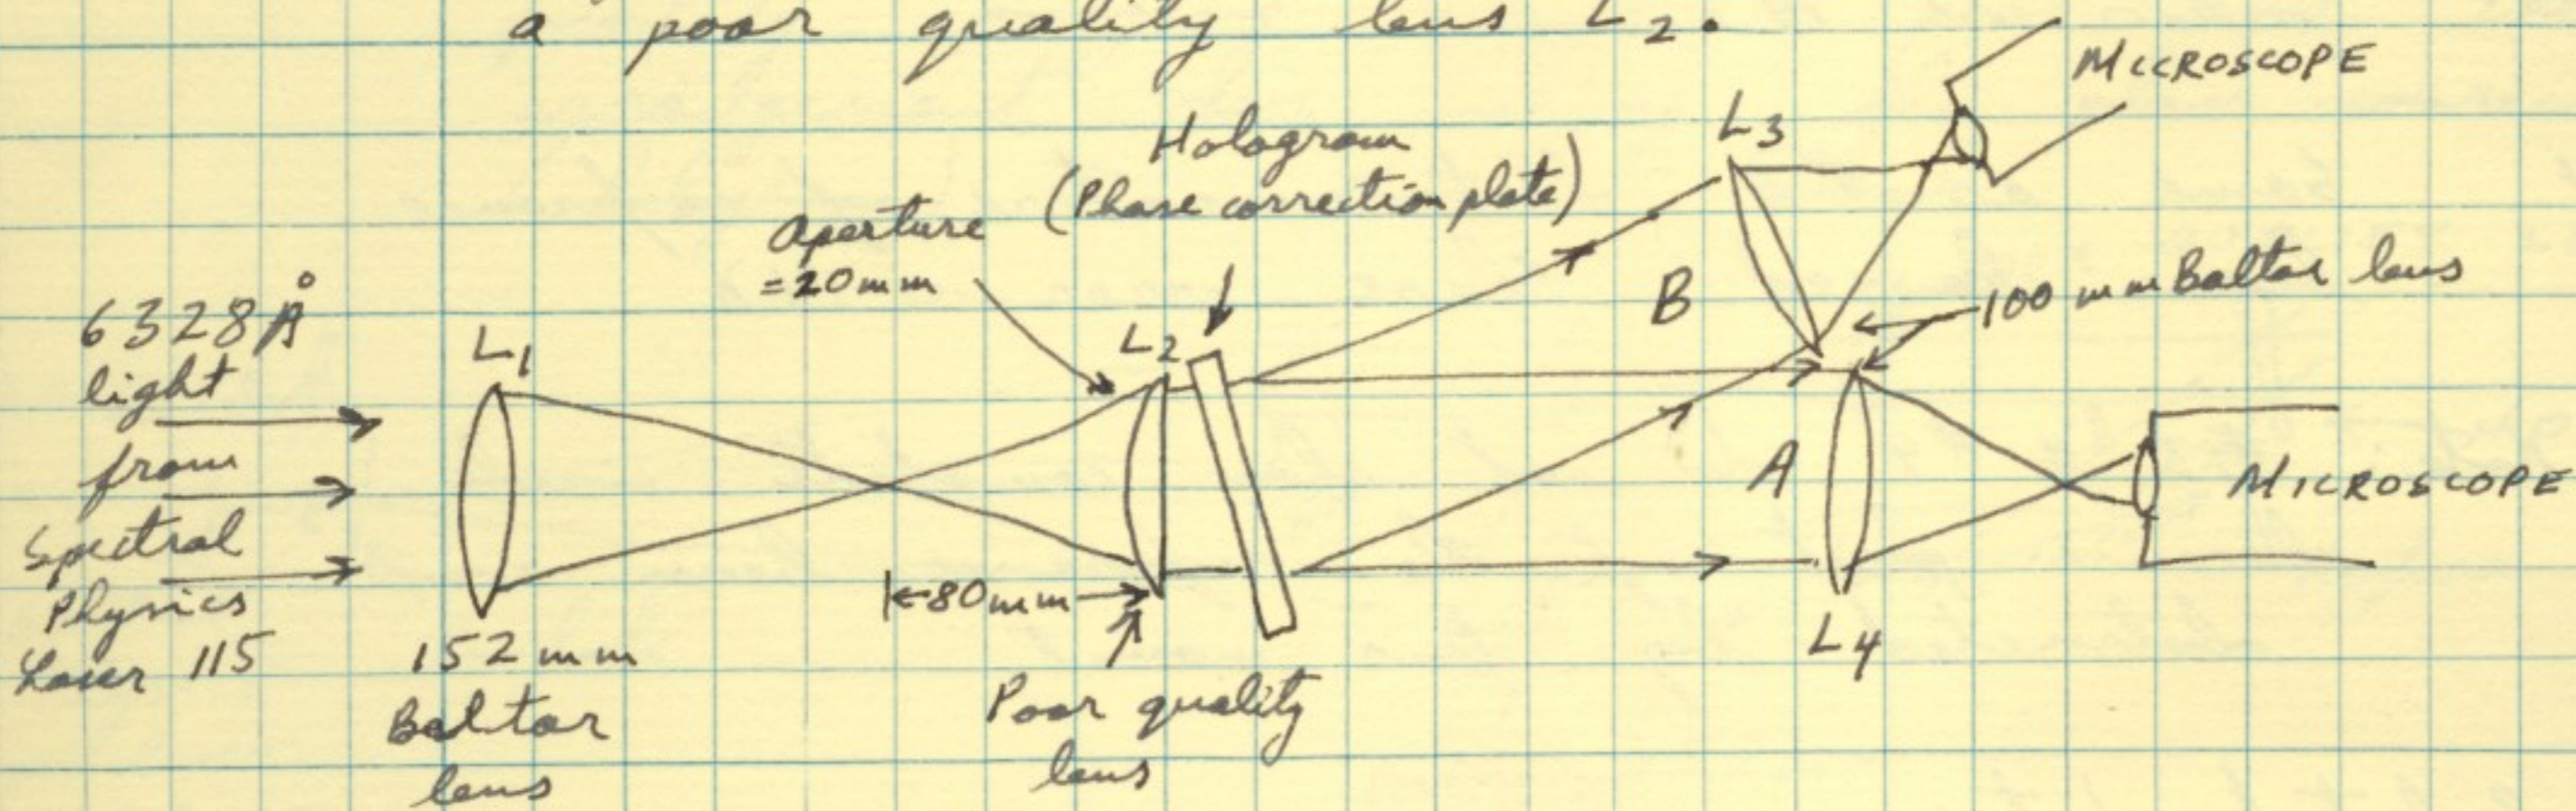 a poor quality lens L2.
MICROSCOPE
Hologram
(Phase correction plate)
L3
Aperture
=20mm
B
100 mm Baltar lens
6328Å
light
from
Spectral
Physics
Laser 115
L1
L2
A
MICROSCOPE
80mm
L4
152 mm
Baltar
lens
Poor quality
lens